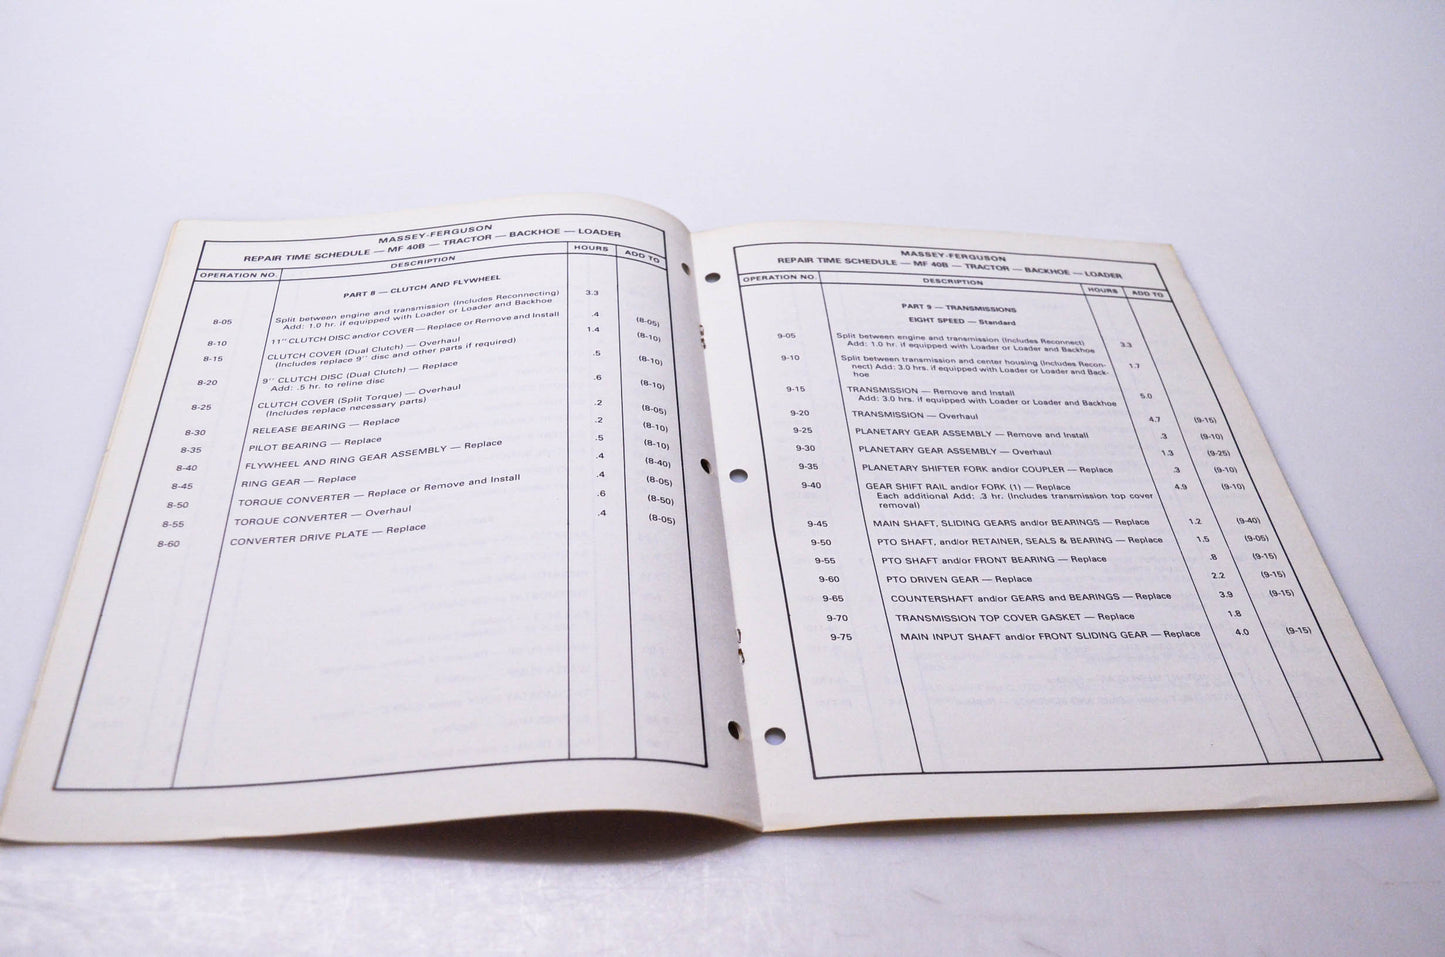 MASSEY-FERGUSON
REPAIR TIME SCHEDULE — MF 40B — TRACTOR — BACKHOE — LOADER
OPERATION NO. DESCRIPTION HOURS ADD TO
PART 8 — CLUTCH AND FLYWHEEL
8-05 Split between engine and transmission (Includes Reconnecting) 3.3
Add: 1.0 hr. if equipped with Loader or Loader and Backhoe
8-10 11" CLUTCH DISC and/or COVER — Replace or Remove and Install .4 (8-05)
8-15 CLUTCH COVER (Dual Clutch) — Overhaul 1.4 (8-10)
(Includes replace 9" disc and other parts if required)
8-20 9" CLUTCH DISC (Dual Clutch) — Replace .5 (8-10)
Add: .5 hr. to reline disc
8-25 CLUTCH COVER (Split Torque) — Overhaul .6 (8-10)
(Includes replace necessary parts)
8-30 RELEASE BEARING — Replace .2 (8-05)
8-35 PILOT BEARING — Replace .2 (8-10)
8-40 FLYWHEEL AND RING GEAR ASSEMBLY — Replace .5 (8-10)
8-45 RING GEAR — Replace .4 (8-40)
8-50 TORQUE CONVERTER — Replace or Remove and Install .4 (8-05)
8-55 TORQUE CONVERTER — Overhaul .6 (8-50)
8-60 CONVERTER DRIVE PLATE — Replace .4 (8-05)
MASSEY-FERGUSON
REPAIR TIME SCHEDULE — MF 40B — TRACTOR — BACKHOE — LOADER
OPERATION NO. DESCRIPTION HOURS ADD TO
PART 9 — TRANSMISSIONS
EIGHT SPEED — Standard
9-05 Split between engine and transmission (Includes Reconnect) 3.3
Add: 1.0 hr. if equipped with Loader or Loader and Backhoe
9-10 Split between transmission and center housing (Includes Recon- 1.7
nect) Add: 3.0 hrs. if equipped with Loader or Loader and Back-
hoe
9-15 TRANSMISSION — Remove and Install 5.0
Add: 3.0 hrs. if equipped with Loader or Loader and Backhoe
9-20 TRANSMISSION — Overhaul 4.7 (9-15)
9-25 PLANETARY GEAR ASSEMBLY — Remove and Install .3 (9-10)
9-30 PLANETARY GEAR ASSEMBLY — Overhaul 1.3 (9-25)
9-35 PLANETARY SHIFTER FORK and/or COUPLER — Replace .3 (9-10)
9-40 GEAR SHIFT RAIL and/or FORK (1) — Replace 4.9 (9-10)
Each additional Add: .3 hr. (Includes transmission top cover
removal)
9-45 MAIN SHAFT, SLIDING GEARS and/or BEARINGS — Replace 1.2 (9-40)
9-50 PTO SHAFT, and/or RETAINER, SEALS & BEARING — Replace 1.5 (9-05)
9-55 PTO SHAFT and/or FRONT BEARING — Replace .8 (9-15)
9-60 PTO DRIVEN GEAR — Replace 2.2 (9-15)
9-65 COUNTERSHAFT and/or GEARS and BEARINGS — Replace 3.9 (9-15)
9-70 TRANSMISSION TOP COVER GASKET — Replace 1.8
9-75 MAIN INPUT SHAFT and/or FRONT SLIDING GEAR — Replace 4.0 (9-15)